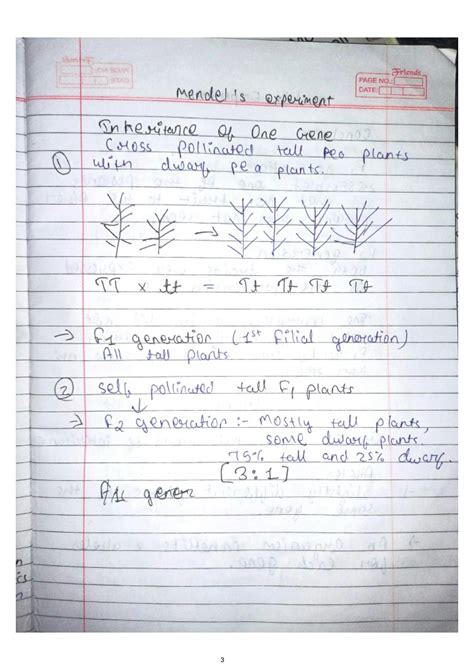 Friends
PAGE NO.:
DATE:
Mendel's experiment
Inheritance Of One Gene
Cross pollinated tall pea plants
① with dwarf pea plants.
TT x tt = Tt Tt Tt Tt
→ F1 generation (1st Filial generation)
All tall plants
② self pollinated tall F1 plants
→ F2 generation :- Mostly tall plants,
some dwarf plants.
75% tall and 25% dwarf.
[3:1]
3